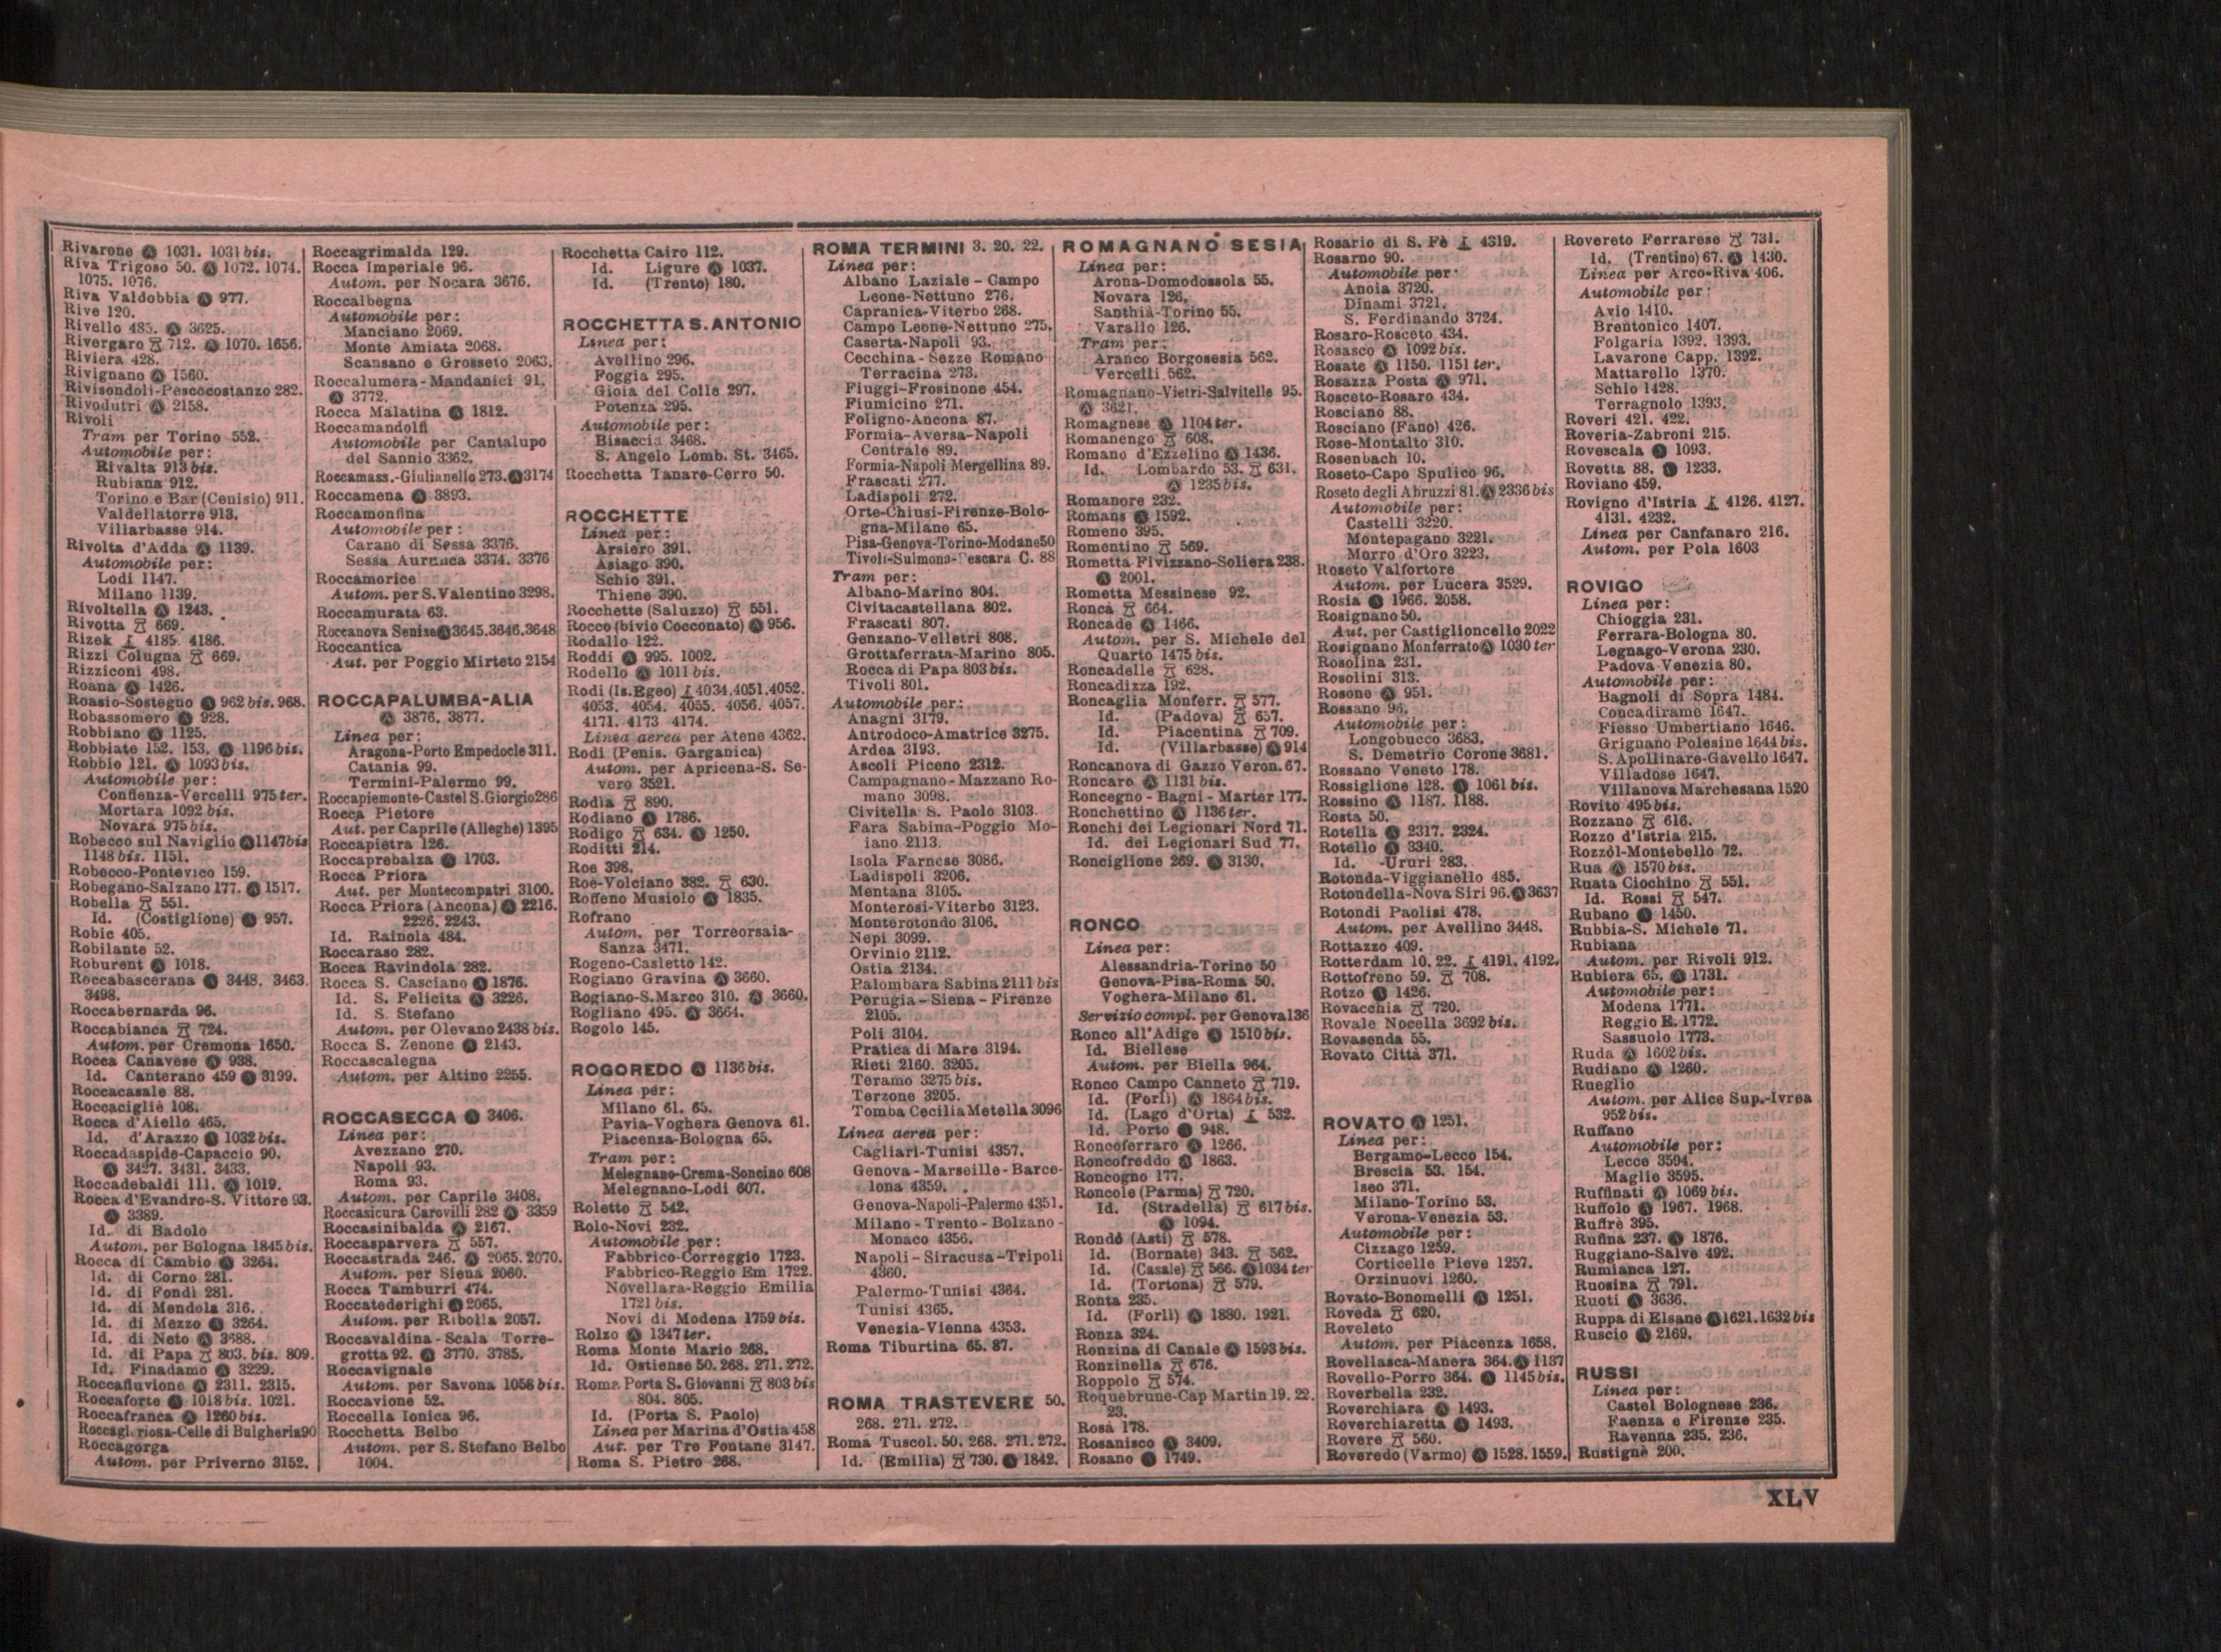 Rivarone Ⓐ 1031. 1031 bis.
Riva Trigoso 50. Ⓐ 1072. 1074.
1075. 1076.
Riva Valdobbia Ⓐ 977.
Rive 120.
Rivello 485. Ⓐ 3625.
Rivergaro 712. Ⓐ 1070. 1656.
Riviera 428.
Rivignano Ⓐ 1560.
Rivisondoli-Pescocostanzo 282.
Rivodutri Ⓐ 2158.
Rivoli
Tram per Torino 552.
Automobile per:
Rivalta 913 bis.
Rubiana 912.
Torino e Bar (Cenisio) 911.
Valdellatorre 913.
Villarbasse 914.
Rivolta d'Adda Ⓐ 1139.
Automobile per:
Lodi 1147.
Milano 1139.
Rivoltella Ⓐ 1243.
Rivotta 669.
Rizek 4185. 4186.
Rizzi Colugna 669.
Rizziconi 498.
Roana Ⓐ 1426.
Roasio-Sostegno Ⓐ 962 bis. 968.
Robassomero Ⓐ 928.
Robbiano Ⓐ 1125.
Robbiate 152. 153. Ⓐ 1196 bis.
Robbio 121. Ⓐ 1093 bis.
Automobile per:
Confienza-Vercelli 975 ter.
Mortara 1092 bis.
Novara 975 bis.
Robecco sul Naviglio Ⓐ 1147 bis
1148 bis. 1151.
Robecco-Pontevico 159.
Robegano-Salzano 177. Ⓐ 1517.
Robella 551.
Id. (Costiglione) Ⓐ 957.
Robic 405.
Robilante 52.
Roburent Ⓐ 1018.
Roccabascerana Ⓐ 3448. 3463.
3498.
Roccabernarda 96.
Roccabianca 724.
Autom. per Cremona 1650.
Rocca Canavese Ⓐ 938.
Id. Canterano 459 Ⓐ 3199.
Roccacasale 88.
Roccacigliè 108.
Rocca d'Aiello 465.
Id. d'Arazzo Ⓐ 1032 bis.
Roccadaspide-Capaccio 90.
Ⓐ 3427. 3431. 3433.
Roccadebaldi 111. Ⓐ 1019.
Rocca d'Evandro-S. Vittore 93.
Ⓐ 3389.
Id. di Badolo
Autom. per Bologna 1845 bis.
Rocca di Cambio Ⓐ 3264.
Id. di Corno 281.
Id. di Fondi 281.
Id. di Mendola 316.
Id. di Mezzo Ⓐ 3264.
Id. di Neto Ⓐ 3688.
Id. di Papa 803. bis. 809.
Id. Finadamo Ⓐ 3229.
Roccafluvione Ⓐ 2311. 2315.
Roccaforte Ⓐ 1018 bis. 1021.
Roccafranca Ⓐ 1260 bis.
Roccagl. riosa-Celle di Bulgheria 90
Roccagorga
Autom. per Priverno 3152.
Roccagrimalda 129.
Rocca Imperiale 96.
Autom. per Nocara 3676.
Roccalbegna
Automobile per:
Manciano 2069.
Monte Amiata 2068.
Scansano e Grosseto 2063.
Roccalumera-Mandanici 91.
Ⓐ 3772.
Rocca Malatina Ⓐ 1812.
Roccamandolfi
Automobile per Cantalupo
del Sannio 3362.
Roccamass.-Giulianello 273. Ⓐ 3174
Roccamena Ⓐ 3893.
Roccamonfina
Automobile per:
Carano di Sessa 3376.
Sessa Aurunca 3374. 3376
Roccamorice
Autom. per S. Valentino 3298.
Roccamurata 63.
Roccanova Senise Ⓐ 3645. 3646. 3648
Roccantica
Aut. per Poggio Mirteto 2154
ROCCAPALUMBA-ALIA
Ⓐ 3876. 3877.
Linea per:
Aragona-Porto Empedocle 311.
Catania 99.
Termini-Palermo 99.
Roccapiemonte-Castel S. Giorgio 286
Rocca Pietore
Aut. per Caprile (Alleghe) 1395
Roccapietra 126.
Roccaprebalza Ⓐ 1703.
Rocca Priora
Aut. per Montecompatri 3100.
Rocca Priora (Ancona) Ⓐ 2216.
2226. 2243.
Id. Rainola 484.
Roccaraso 282.
Rocca Ravindola 282.
Rocca S. Casciano Ⓐ 1876.
Id. S. Felicita Ⓐ 3226.
Id. S. Stefano
Autom. per Olevano 2438 bis.
Rocca S. Zenone Ⓐ 2143.
Roccascalegna
Autom. per Altino 2255.
ROCCASECCA Ⓐ 3406.
Linea per:
Avezzano 270.
Napoli 93.
Roma 93.
Autom. per Caprile 3408.
Roccasicura Carovilli 282 Ⓐ 3359
Roccasinibalda Ⓐ 2167.
Roccasparvera 557.
Roccastrada 246. Ⓐ 2065. 2070.
Autom. per Siena 2060.
Rocca Tamburri 474.
Roccatederighi Ⓐ 2065.
Autom. per Ribolla 2057.
Roccavaldina-Scala Torre-
grotta 92. Ⓐ 3770. 3785.
Roccavignale
Autom. per Savona 1058 bis.
Roccavione 52.
Roccella Ionica 96.
Rocchetta Belbo
Autom. per S. Stefano Belbo
1004.
Rocchetta Cairo 112.
Id. Ligure Ⓐ 1037.
Id. (Trento) 180.
ROCCHETTA S. ANTONIO
Linea per:
Avellino 296.
Foggia 295.
Gioia del Colle 297.
Potenza 295.
Automobile per:
Bisaccia 3468.
S. Angelo Lomb. St. 3465.
Rocchetta Tanaro-Cerro 50.
ROCCHETTE
Linea per:
Arsiero 391.
Asiago 390.
Schio 391.
Thiene 390.
Rocchette (Saluzzo) 551.
Rocco (bivio Cocconato) Ⓐ 956.
Rodallo 122.
Roddi Ⓐ 995. 1002.
Rodello Ⓐ 1011 bis.
Rodi (Is. Egeo) 4034. 4051. 4052.
4053. 4054. 4055. 4056. 4057.
4171. 4173 4174.
Linea aerea per Atene 4362.
Rodi (Penis. Garganica)
Autom. per Apricena-S. Se-
vero 3521.
Rodia 890.
Rodiano Ⓐ 1786.
Rodigo 634. Ⓐ 1250.
Roditti 214.
Roe 398.
Roè-Volciano 382. 630.
Roffeno Musiolo Ⓐ 1835.
Rofrano
Autom. per Torreorsaia-
Sanza 3471.
Rogeno-Casletto 142.
Rogiano Gravina Ⓐ 3660.
Rogiano-S. Marco 310. Ⓐ 3660.
Rogliano 495. Ⓐ 3664.
Rogolo 145.
ROGOREDO Ⓐ 1136 bis.
Linea per:
Milano 61. 65.
Pavia-Voghera Genova 61.
Piacenza-Bologna 65.
Tram per:
Melegnano-Crema-Soncino 608
Melegnano-Lodi 607.
Roletto 542.
Rolo-Novi 232.
Automobile per:
Fabbrico-Correggio 1723.
Fabbrico-Reggio Em 1722.
Novellara-Reggio Emilia
1721 bis.
Novi di Modena 1759 bis.
Rolzo Ⓐ 1347 ter.
Roma Monte Mario 268.
Id. Ostiense 50. 268. 271. 272.
Roma Porta S. Giovanni 803 bis
804. 805.
Id. (Porta S. Paolo)
Linea per Marina d'Ostia 458
Aut. per Tre Fontane 3147.
Roma S. Pietro 268.
ROMA TERMINI 3. 20. 22.
Linea per:
Albano Laziale - Campo
Leone-Nettuno 276.
Capranica-Viterbo 268.
Campo Leone-Nettuno 275.
Caserta-Napoli 93.
Cecchina-Sezze Romano
Terracina 273.
Fiuggi-Frosinone 454.
Fiumicino 271.
Foligno-Ancona 87.
Formia-Aversa-Napoli
Centrale 89.
Formia-Napoli Mergellina 89.
Frascati 277.
Ladispoli 272.
Orte-Chiusi-Firenze-Bolo-
gna-Milano 65.
Pisa-Genova-Torino-Modane 50
Tivoli-Sulmona-Pescara C. 88
Tram per:
Albano-Marino 804.
Civitacastellana 802.
Frascati 807.
Genzano-Velletri 808.
Grottaferrata-Marino 805.
Rocca di Papa 803 bis.
Tivoli 801.
Automobile per:
Anagni 3179.
Antrodoco-Amatrice 3275.
Ardea 3193.
Ascoli Piceno 2312.
Campagnano-Mazzano Ro-
mano 3098.
Civitella S. Paolo 3103.
Fara Sabina-Poggio Mo-
iano 2113.
Isola Farnese 3086.
Ladispoli 3206.
Mentana 3105.
Monterosi-Viterbo 3123.
Monterotondo 3106.
Nepi 3099.
Orvinio 2112.
Ostia 2134.
Palombara Sabina 2111 bis
Perugia - Siena - Firenze
2105.
Poli 3104.
Pratica di Mare 3194.
Rieti 2160. 3205.
Teramo 3275 bis.
Terzone 3205.
Tomba Cecilia Metella 3096
Linea aerea per:
Cagliari-Tunisi 4357.
Genova-Marseille-Barce-
lona 4359.
Genova-Napoli-Palermo 4351.
Milano - Trento - Bolzano -
Monaco 4356.
Napoli - Siracusa - Tripoli
4360.
Palermo-Tunisi 4364.
Tunisi 4365.
Venezia-Vienna 4353.
Roma Tiburtina 65. 87.
ROMA TRASTEVERE 50.
268. 271. 272.
Roma Tuscol. 50. 268. 271. 272.
Id. (Emilia) 730. Ⓐ 1842.
ROMAGNANO SESIA
Linea per:
Arona-Domodossola 55.
Novara 126.
Santhià-Torino 55.
Varallo 126.
Tram per:
Aranco Borgosesia 562.
Vercelli 562.
Romagnano-Vietri-Salvitelle 95.
Ⓐ 3621.
Romagnese Ⓐ 1104 ter.
Romanengo 608.
Romano d'Ezzelino Ⓐ 1436.
Id. Lombardo 53. 631.
Ⓐ 1235 bis.
Romanore 232.
Romans Ⓐ 1592.
Romeno 395.
Romentino 569.
Rometta Fivizzano-Soliera 238.
Ⓐ 2001.
Rometta Messinese 92.
Roncà 664.
Roncade Ⓐ 1466.
Autom. per S. Michele del
Quarto 1475 bis.
Roncadelle 628.
Roncadizza 192.
Roncaglia Monferr. 577.
Id. (Padova) 657.
Id. Piacentina 709.
Id. (Villarbasse) Ⓐ 914
Roncanova di Gazzo Veron. 67.
Roncaro Ⓐ 1131 bis.
Roncegno - Bagni - Marter 177.
Ronchettino Ⓐ 1136 ter.
Ronchi dei Legionari Nord 71.
Id. dei Legionari Sud 77.
Ronciglione 269. Ⓐ 3130.
RONCO
Linea per:
Alessandria-Torino 50
Genova-Pisa-Roma 50.
Voghera-Milano 61.
Servizio compl. per Genova 136
Ronco all'Adige Ⓐ 1510 bis.
Id. Biellese
Autom. per Biella 964.
Ronco Campo Canneto 719.
Id. (Forlì) Ⓐ 1864 bis.
Id. (Lago d'Orta) 532.
Id. Porto Ⓐ 948.
Roncoferraro Ⓐ 1266.
Roncofreddo Ⓐ 1863.
Roncogno 177.
Roncole (Parma) 720.
Id. (Stradella) 617 bis.
Ⓐ 1094.
Rondò (Asti) 578.
Id. (Bornate) 343. 562.
Id. (Casale) 566. Ⓐ 1034 ter
Id. (Tortona) 579.
Ronta 235.
Id. (Forlì) Ⓐ 1880. 1921.
Ronza 324.
Ronzina di Canale Ⓐ 1593 bis.
Ronzinella 676.
Roppolo 574.
Roquebrune-Cap Martin 19. 22.
23.
Rosà 178.
Rosanisco Ⓐ 3409.
Rosano Ⓐ 1749.
Rosario di S. Fè 4319.
Rosarno 90.
Automobile per:
Anoia 3720.
Dinami 3721.
S. Ferdinando 3724.
Rosaro-Rosceto 434.
Rosasco Ⓐ 1092 bis.
Rosate Ⓐ 1150. 1151 ter.
Rosazza Posta Ⓐ 971.
Rosceto-Rosaro 434.
Rosciano 88.
Rosciano (Fano) 426.
Rose-Montalto 310.
Rosenbach 10.
Roseto-Capo Spulico 96.
Roseto degli Abruzzi 81. Ⓐ 2336 bis
Automobile per:
Castelli 3220.
Montepagano 3221.
Morro d'Oro 3223.
Roseto Valfortore
Autom. per Lucera 3529.
Rosia Ⓐ 1966. 2058.
Rosignano 50.
Aut. per Castiglioncello 2022
Rosignano Monferrato Ⓐ 1030 ter
Rosolina 231.
Rosolini 313.
Rosone Ⓐ 951.
Rossano 96.
Automobile per:
Longobucco 3683.
S. Demetrio Corone 3681.
Rossano Veneto 178.
Rossiglione 128. Ⓐ 1061 bis.
Rossino Ⓐ 1187. 1188.
Rosta 50.
Rotella Ⓐ 2317. 2324.
Rotello Ⓐ 3340.
Id. -Ururi 283.
Rotonda-Viggianello 485.
Rotondella-Nova Siri 96. Ⓐ 3637
Rotondi Paolisi 478.
Autom. per Avellino 3448.
Rottazzo 409.
Rotterdam 10. 22. 4191. 4192.
Rottofreno 59. 708.
Rotzo Ⓐ 1426.
Rovacchia 720.
Rovale Nocella 3692 bis.
Rovasenda 55.
Rovato Città 371.
ROVATO Ⓐ 1251.
Linea per:
Bergamo-Lecco 154.
Brescia 53. 154.
Iseo 371.
Milano-Torino 53.
Verona-Venezia 53.
Automobile per:
Cizzago 1259.
Corticelle Pieve 1257.
Orzinuovi 1260.
Rovato-Bonomelli Ⓐ 1251.
Roveda 620.
Roveleto
Autom. per Piacenza 1658.
Rovellasca-Manera 364. Ⓐ 1137
Rovello-Porro 364. Ⓐ 1145 bis.
Roverbella 232.
Roverchiara Ⓐ 1493.
Roverchiaretta Ⓐ 1493.
Rovere 560.
Roveredo (Varmo) Ⓐ 1528. 1559.
Rovereto Ferrarese 731.
Id. (Trentino) 67. Ⓐ 1430.
Linea per Arco-Riva 406.
Automobile per:
Avio 1410.
Brentonico 1407.
Folgaria 1392. 1393.
Lavarone Capp. 1392.
Mattarello 1370.
Schio 1428.
Terragnolo 1393.
Roveri 421. 422.
Roveria-Zabroni 215.
Rovescala Ⓐ 1093.
Rovetta 88. Ⓐ 1233.
Roviano 459.
Rovigno d'Istria 4126. 4127.
4131. 4232.
Linea per Canfanaro 216.
Autom. per Pola 1603
ROVIGO
Linea per:
Chioggia 231.
Ferrara-Bologna 80.
Legnago-Verona 230.
Padova-Venezia 80.
Automobile per:
Bagnoli di Sopra 1484.
Concadirame 1647.
Fiesso Umbertiano 1646.
Grignano Polesine 1644 bis.
S. Apollinare-Gavello 1647.
Villadose 1647.
Villanova Marchesana 1520
Rovito 495 bis.
Rozzano 616.
Rozzo d'Istria 215.
Rozzòl-Montebello 72.
Rua Ⓐ 1570 bis.
Ruata Ciochino 551.
Id. Rossi 547.
Rubano Ⓐ 1450.
Rubbia-S. Michele 71.
Rubiana
Autom. per Rivoli 912.
Rubiera 65. Ⓐ 1731.
Automobile per:
Modena 1771.
Reggio E. 1772.
Sassuolo 1773.
Ruda Ⓐ 1602 bis.
Rudiano Ⓐ 1260.
Rueglio
Autom. per Alice Sup.-Ivrea
952 bis.
Ruffano
Automobile per:
Lecce 3594.
Maglie 3595.
Ruffinati Ⓐ 1069 bis.
Ruffolo Ⓐ 1967. 1968.
Ruffrè 395.
Rufina 237. Ⓐ 1876.
Ruggiano-Salve 492.
Rumianca 127.
Ruosina 791.
Ruoti Ⓐ 3636.
Ruppa di Elsane Ⓐ 1621. 1632 bis
Ruscio Ⓐ 2169.
RUSSI
Linea per:
Castel Bolognese 236.
Faenza e Firenze 235.
Ravenna 235. 236.
Rustignè 200.
XLV